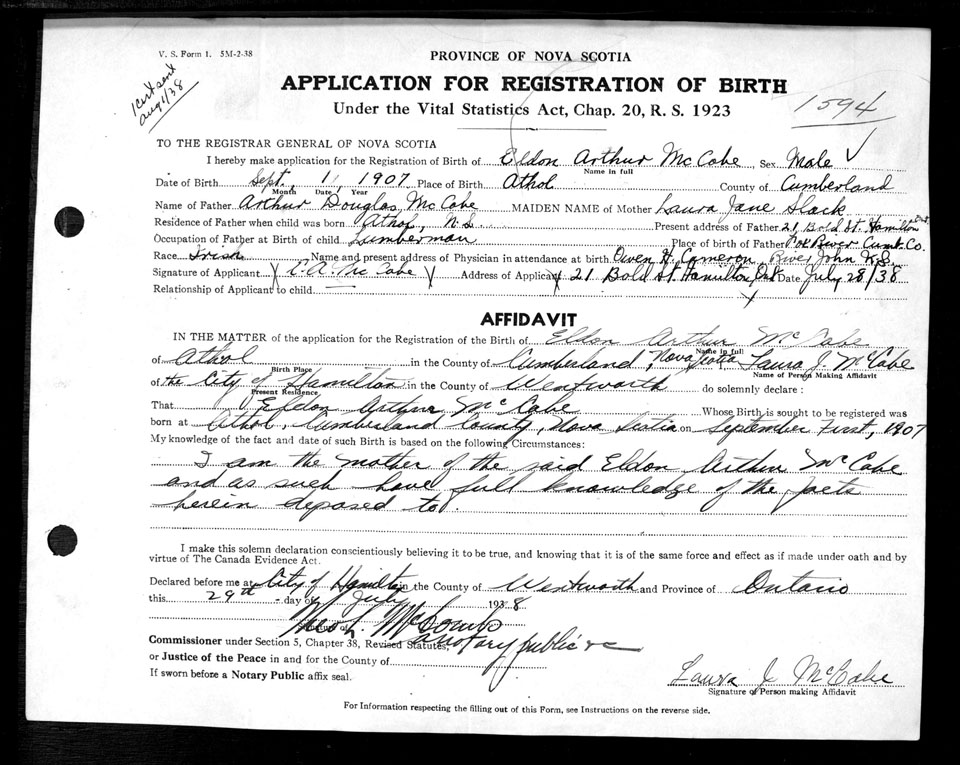 V. S. Form 1. 5M-2-38
PROVINCE OF NOVA SCOTIA
APPLICATION FOR REGISTRATION OF BIRTH
Under the Vital Statistics Act, Chap. 20, R. S. 1923
1 Cert sent
Aug 1/38
1594
TO THE REGISTRAR GENERAL OF NOVA SCOTIA
I hereby make application for the Registration of Birth of Eldon Arthur McCabe Sex Male
Name in full
Date of Birth Sept. 1, 1907 Place of Birth Athol County of Cumberland
Month Date Year
Name of Father Arthur Douglas McCabe MAIDEN NAME of Mother Laura Jane Slack
Residence of Father when child was born Athol, N.S. Present address of Father 21 Bold St. Hamilton Ont
Occupation of Father at Birth of child Lumberman Place of birth of Father River Cumb. Co.
Race Irish Name and present address of Physician in attendance at birth Owen H. Cameron, River John N.S.
Signature of Applicant E.A. McCabe Address of Applicant 21 Bold St. Hamilton, Ont Date July 28/38
Relationship of Applicant to child
AFFIDAVIT
IN THE MATTER of the application for the Registration of the Birth of Eldon Arthur McCabe
Name in full
of Athol in the County of Cumberland, Nova Scotia Laura J McCabe
Birth Place Name of Person Making Affidavit
of the City of Hamilton in the County of Wentworth do solemnly declare:
Present Residence
That Eldon Arthur McCabe Whose Birth is sought to be registered was
born at Athol, Cumberland County, Nova Scotia on September First, 1907
My knowledge of the fact and date of such Birth is based on the following Circumstances:
I am the mother of the said Eldon Arthur McCabe
and as such have full knowledge of the facts
herein deposed to.
I make this solemn declaration conscientiously believing it to be true, and knowing that it is of the same force and effect as if made under oath and by
virtue of The Canada Evidence Act.
Declared before me at City of Hamilton in the County of Wentworth and Province of Ontario
this 29th day of July 1938
Signature of
a notary public
Commissioner under Section 5, Chapter 38, Revised Statutes,
or Justice of the Peace in and for the County of
If sworn before a Notary Public affix seal.
Laura J McCabe
Signature of Person making Affidavit
For Information respecting the filling out of this Form, see Instructions on the reverse side.